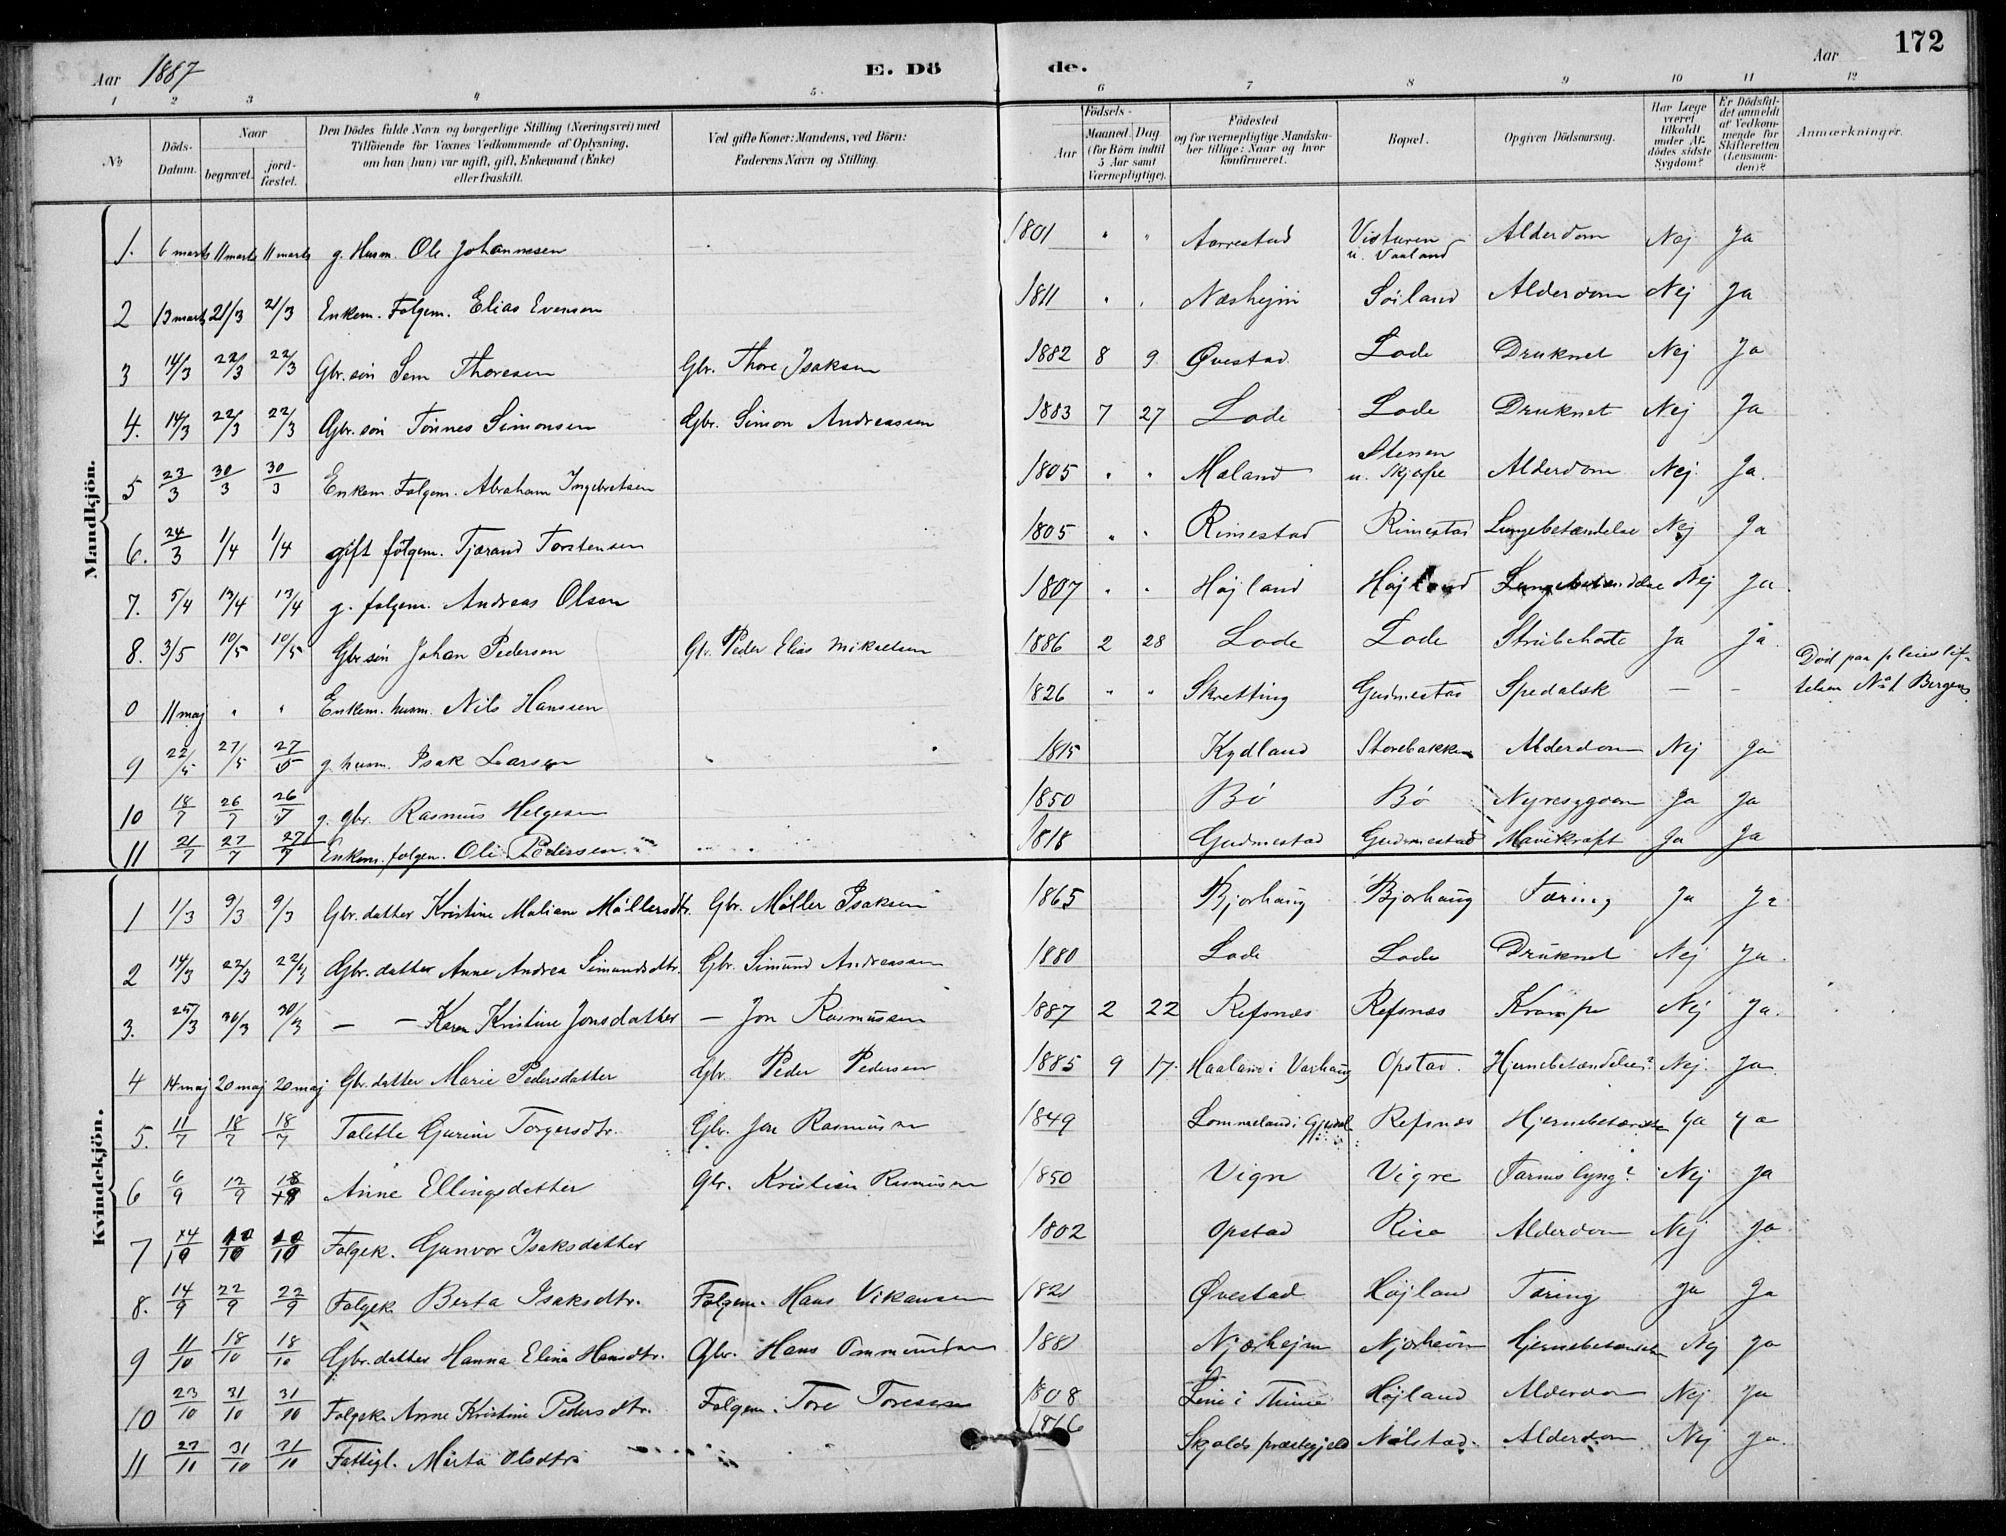 172
Aar 1887 E. Döde. Aar
1 2 3 4 5 6 7 8 9 10 11 12
No
Döds-Datum.
Naar
begravet.
jord-fæstet.
Den Dödes fulde Navn og borgerlige Stilling (Næringsvei) med
Tilföiende for Voxnes Vedkommende af Oplysning,
om han (hun) var ugift, gift, Enkemand (Enke)
eller fraskilt.
Ved gifte Koner: Mandens, ved Börn:
Faderens Navn og Stilling.
Födsels-
Aar
Maaned. Dag.
(for Börn indtil
5 Aar samt
Værnepligtige).
Födested
og for værnepligtige Mandska-
ber tillige: Naar og hvor
konfirmeret.
Bopæl.
Opgiven Dödsaarsag.
Har Læge
været
tilkaldt
under Af-
dödes sidste
Sygdom?
Er Dödsfal-
det anmeldt
af Vedkom-
mende for
Skifteretten
(Lensman-
den)?
Anmærkninger.
Mandkjön.
1. 6 marts 11 marts 11 marts g. Husm. Ole Johannesen 1801 " " Aarrestad Visturen u. Vaaland Alderdom Nej Ja
2 13 marts 21/3 21/3 Enkem. Folgem. Elias Evensen 1811 " " Næshejm Söiland Alderdom Nej Ja
3 14/3 22/3 22/3 Gbr. sön Sem Thoresen Gbr. Thore Isaksen 1882 8 9 Øvestad Lode Druknet Nej Ja
4. 14/3 22/3 22/3 Gbr. sön Tönnes Simonsen Gbr. Simon Andreassen 1883 7 27 Lode Lode Druknet Nej Ja
5 23/3 30/3 30/3 Enkem. Folgem. Abraham Ingebretsen 1805 " " Maland Stenen u. Skjærpe Alderdom Nej. Ja.
6. 24/3 1/4 1/4 gift fölgem. Tjærand Torstensen 1805 " " Rimestad Rimestad Lungebetændelse Nej Ja
7. 5/4 13/4 13/4 g. folgem. Andreas Olsen 1807 " " Højland Højland Lungebetændelse Nej Ja.
8. 3/5 10/5 10/5 Gbr. sön Johan Pedersen Gb. Peder Elias Mikaelsen 1886 2 28 Lode Lode Strubehoste Ja Ja.
0 11 maj " " Enkem. husm. Nils Hanssen 1826 " " Skretting Gudmestad Spedalsk — — Död paa pleiestif-
telsen No 1 Bergen.
9 22/5 27/5 27/5 g. husm. Isak Larsen 1815 Kydland Storebakken Alderdom Nej Ja
10 18/7 26/7 26/7 g. gbr. Rasmus Helgesen 1850 Bö Bö Nyresygdom Ja Ja
11 21/7 27/7 27/7 Enkem. folgem. Ole Pedersen 1818 Gudmestad Gudmestad Mavekræft Ja Ja
Kvindekjön.
1 1/3 9/3 9/3 Gbr. datter Kristine Maliene Möllersdtr. Gbr. Möller Isaksen 1865 Bjorhaug Bjorhaug Tæring Ja Ja
2 14/3 22/3 22/3 Gbr. datter Anne Andrea Simundsdtr. Gbr. Simund Andreassen 1880 Lode Lode Druknet Nej Ja.
3. 25/3 30/3 30/3 — — Karen Kristine Jonsdatter — Jon Rasmussen 1887 2 22 Refsnæs Refsnæs Krampe Nej Ja.
4 14 maj 20 maj 20 maj Gbr. datter Marie Pedersdatter Gbr. Peder Pedersen 1885 9 17. Haaland i Varhaug Opstad. Hjernebetændelse? Nej. Ja.
5. 11/7 18/7 18/7 Talette Gurine Torgersdtr. Gbr. Jon Rasmussen 1849 Lommeland i Gjesdal Refsnæs Hjernebetændelse Ja Ja
6 6/9 12/9 Anne Ellingsdatter Gbr. Kristian Rasmussen 1850 Vigre Vigre Tarmslyng? Nej Ja
7 Folgek. Gunvor Isaksdatter 1802 Opstad Risa Alderdom Nej Ja
8. 14/9 22/9 22/9 Folgek Berta Isaksdtr. Folgem. Hans Vikansen 1821 Øvestad Højland Tæring Ja Ja
9 11/10 18/10 18/10 Gbr. datter Hanna Elina Hansdtr. Gbr. Hans Ommundsen 1881 Njærhejm Njærheim Hjernebetændelse Nej Ja
10 23/10 31/10 31/10 Folgek. Anne Kristine Pedersdtr. Folgem. Tore Toresen 1808 Line i Thime Højland Alderdom Nej. Ja
11 27/10 31/10 31/10 Fattigl. Märta Olsdtr. Skjolds præstegjeld Nölstad. Alderdom Nej Ja.